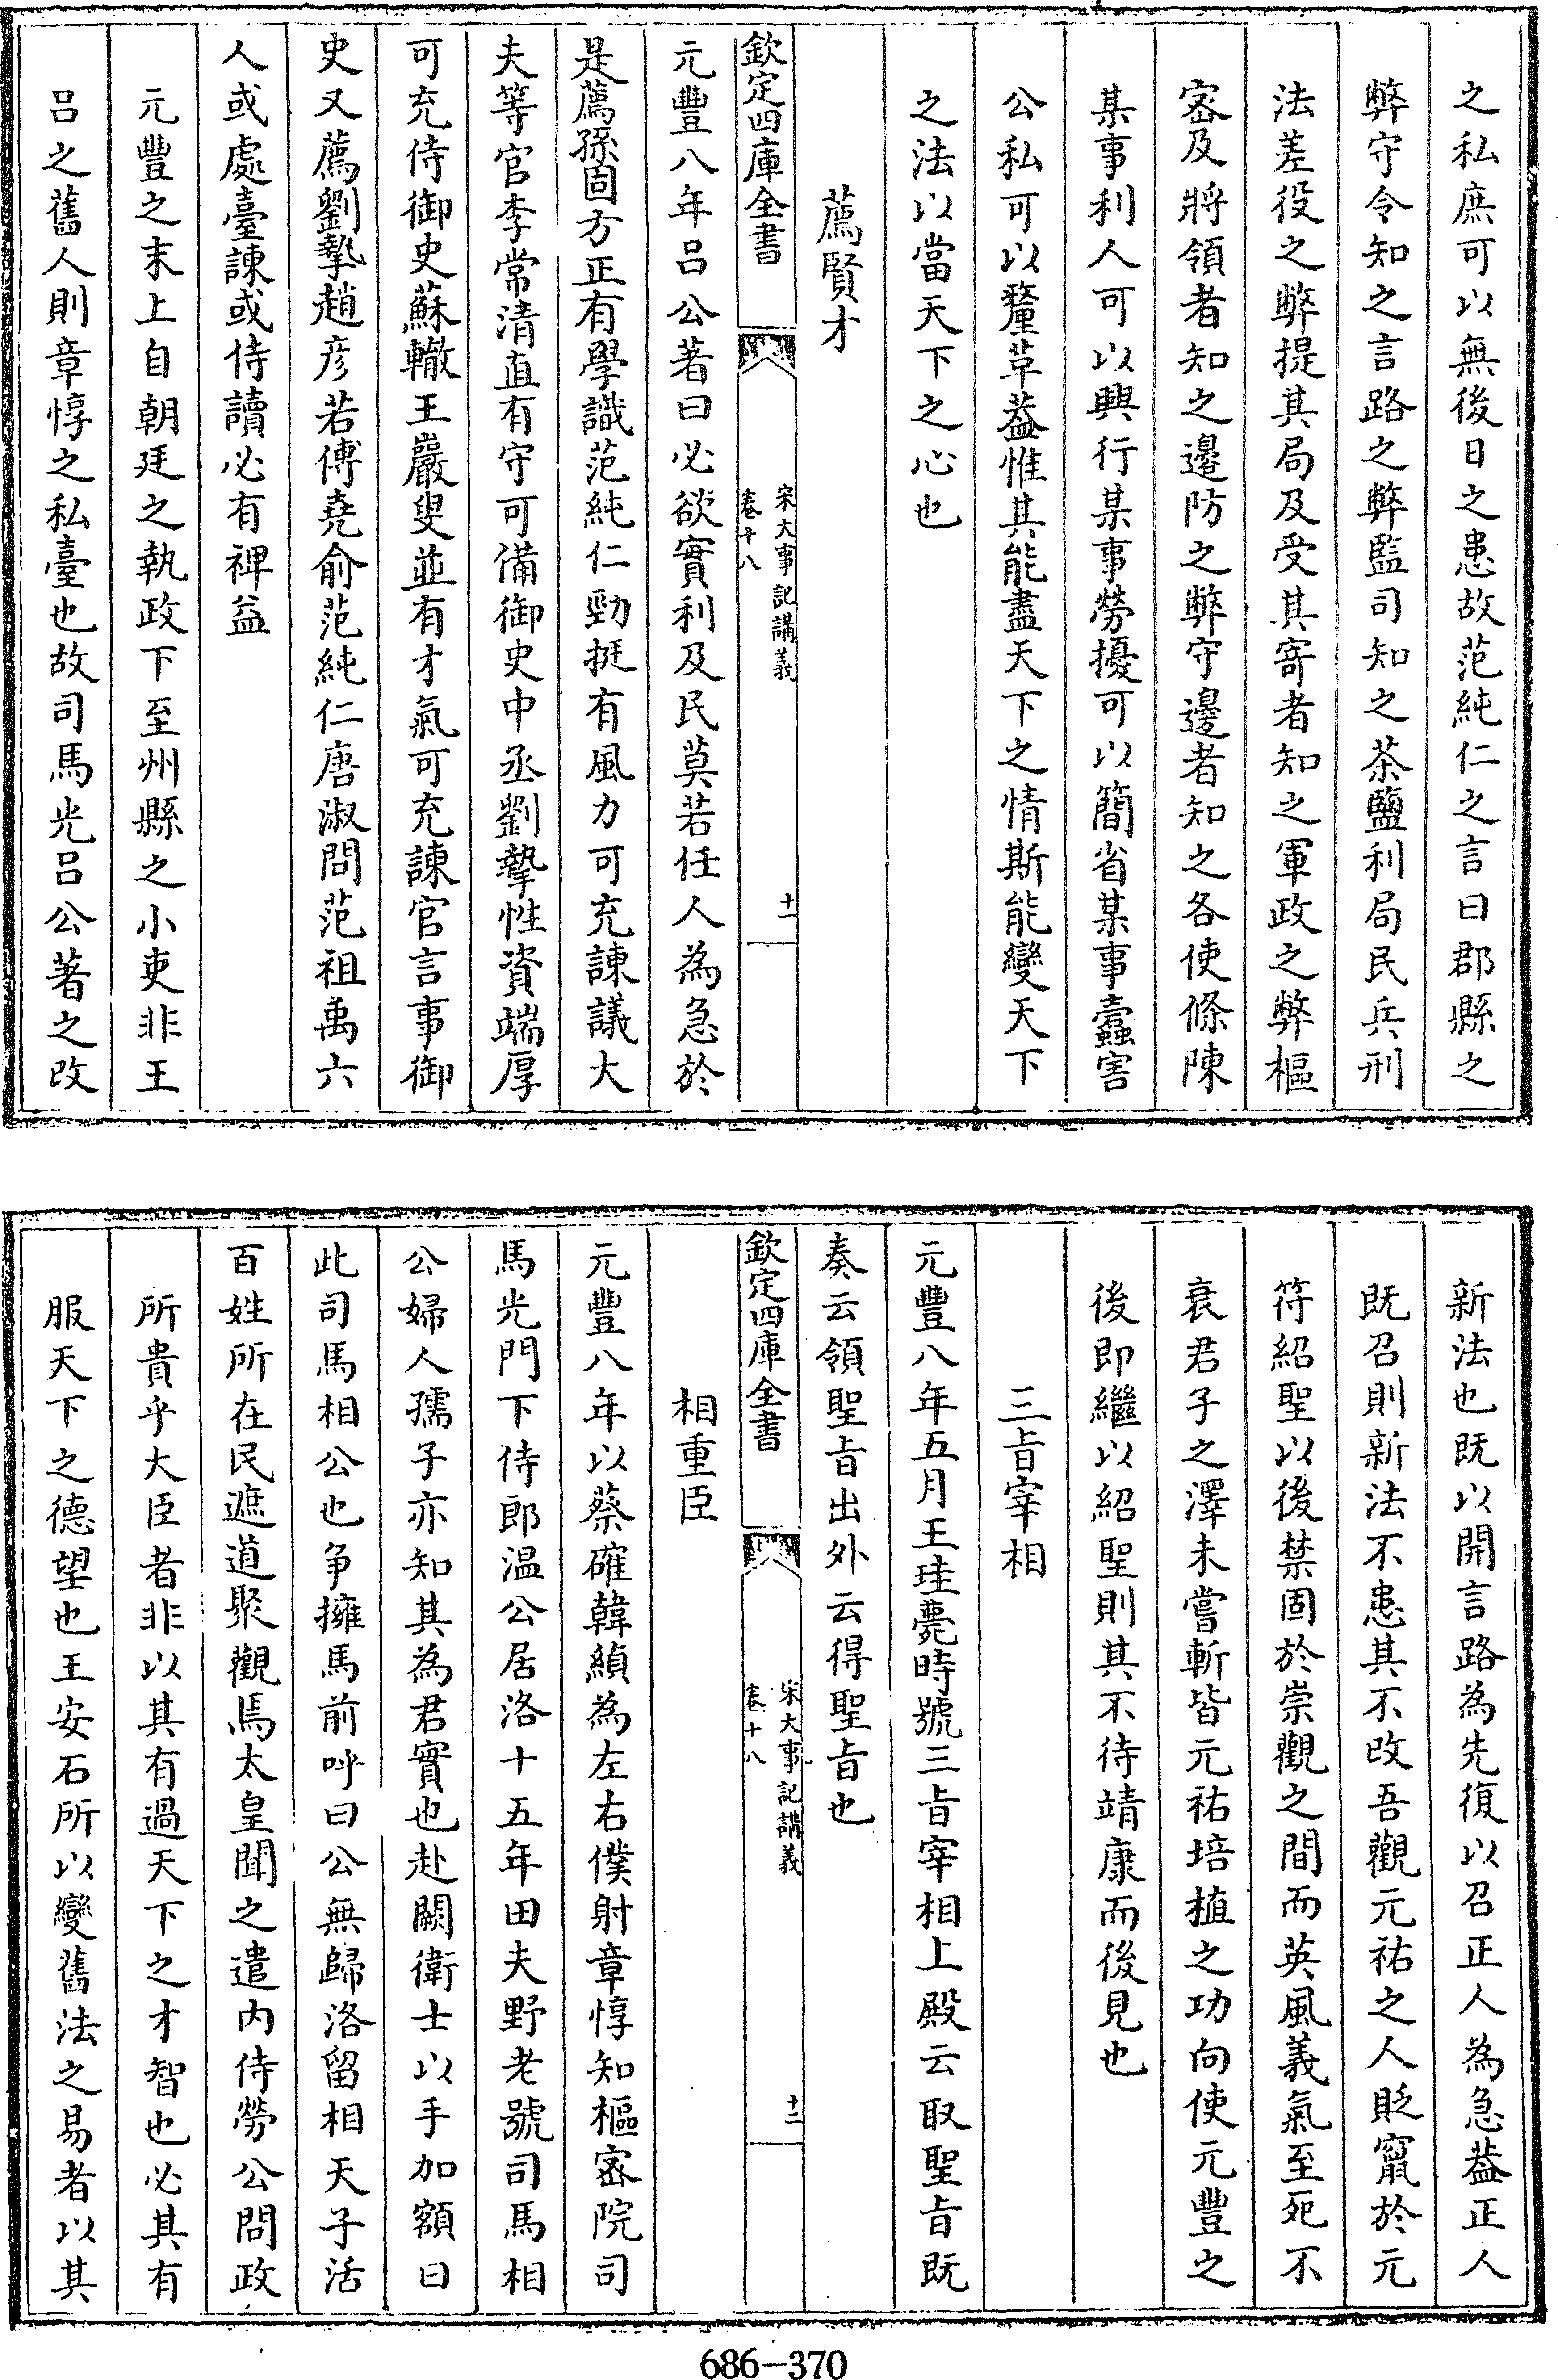 之私庶可以無後日之患故范純仁之言曰郡縣之
弊守令知之言路之弊監司知之茶鹽利局民兵刑
法差役之弊提其局及受其寄者知之軍政之弊樞
宻及將領者知之邊防之弊守邊者知之各使條陳
某事利人可以興行某事勞擾可以簡省某事蠹害
公私可以釐革葢惟其能盡天下之情斯能變天下
之法以當天下之心也
薦賢才
欽定四庫全書
宋大事記講義
卷十八
十一
元豐八年呂公著曰必欲實利及民莫若任人為急於
是薦孫固方正有學識范純仁勁挺有風力可充諫議大
夫等官李常清直有守可備御史中丞劉摯性資端厚
可充侍御史蘇轍王巖叟並有才氣可充諫官言事御
史又薦劉摯趙彦若傅堯俞范純仁唐淑問范祖禹六
人或處臺諫或侍讀必有裨益
元豐之末上自朝廷之執政下至州縣之小吏非王
呂之舊人則章惇之私臺也故司馬光呂公著之改
新法也既以開言路為先復以召正人為急葢正人
既召則新法不患其不改吾觀元祐之人貶竄於元
符紹聖以後禁固於崇觀之間而英風義氣至死不
衰君子之澤未嘗斬皆元祐培植之功向使元豐之
後即繼以紹聖則其不待靖康而後見也
三㫖宰相
元豐八年五月王珪薨時號三㫖宰相上殿云取聖㫖既
奏云領聖㫖出外云得聖㫖也
欽定四庫全書
宋大事記講義
卷十八
十二
相重臣
元豐八年以蔡確韓縝為左右僕射章惇知樞宻院司
馬光門下侍郎温公居洛十五年田夫野老號司馬相
公婦人孺子亦知其為君實也赴闕衛士以手加額曰
此司馬相公也争擁馬前呼曰公無歸洛留相天子活
百姓所在民遮道聚觀馬太皇聞之遣内侍勞公問政
所貴乎大臣者非以其有過天下之才智也必其有
服天下之德望也王安石所以變舊法之易者以其
686-370